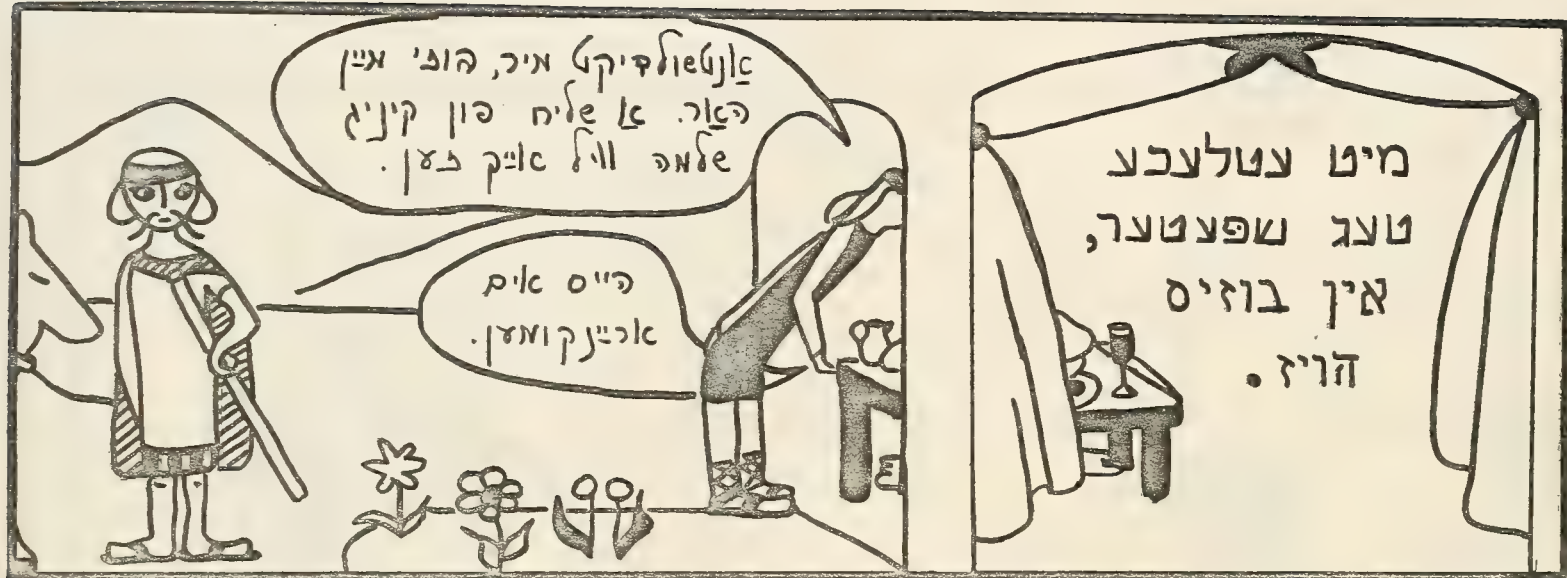 מיט עטלעכע
טעג שפעטער,
אין בוזיס
הויז.
אַנטשולדיקט מיר, בוזי מיין
האַר. אַ שליח פון קיניג
שלמה וויל אייך זען.
הייס אים
אריינקומען.